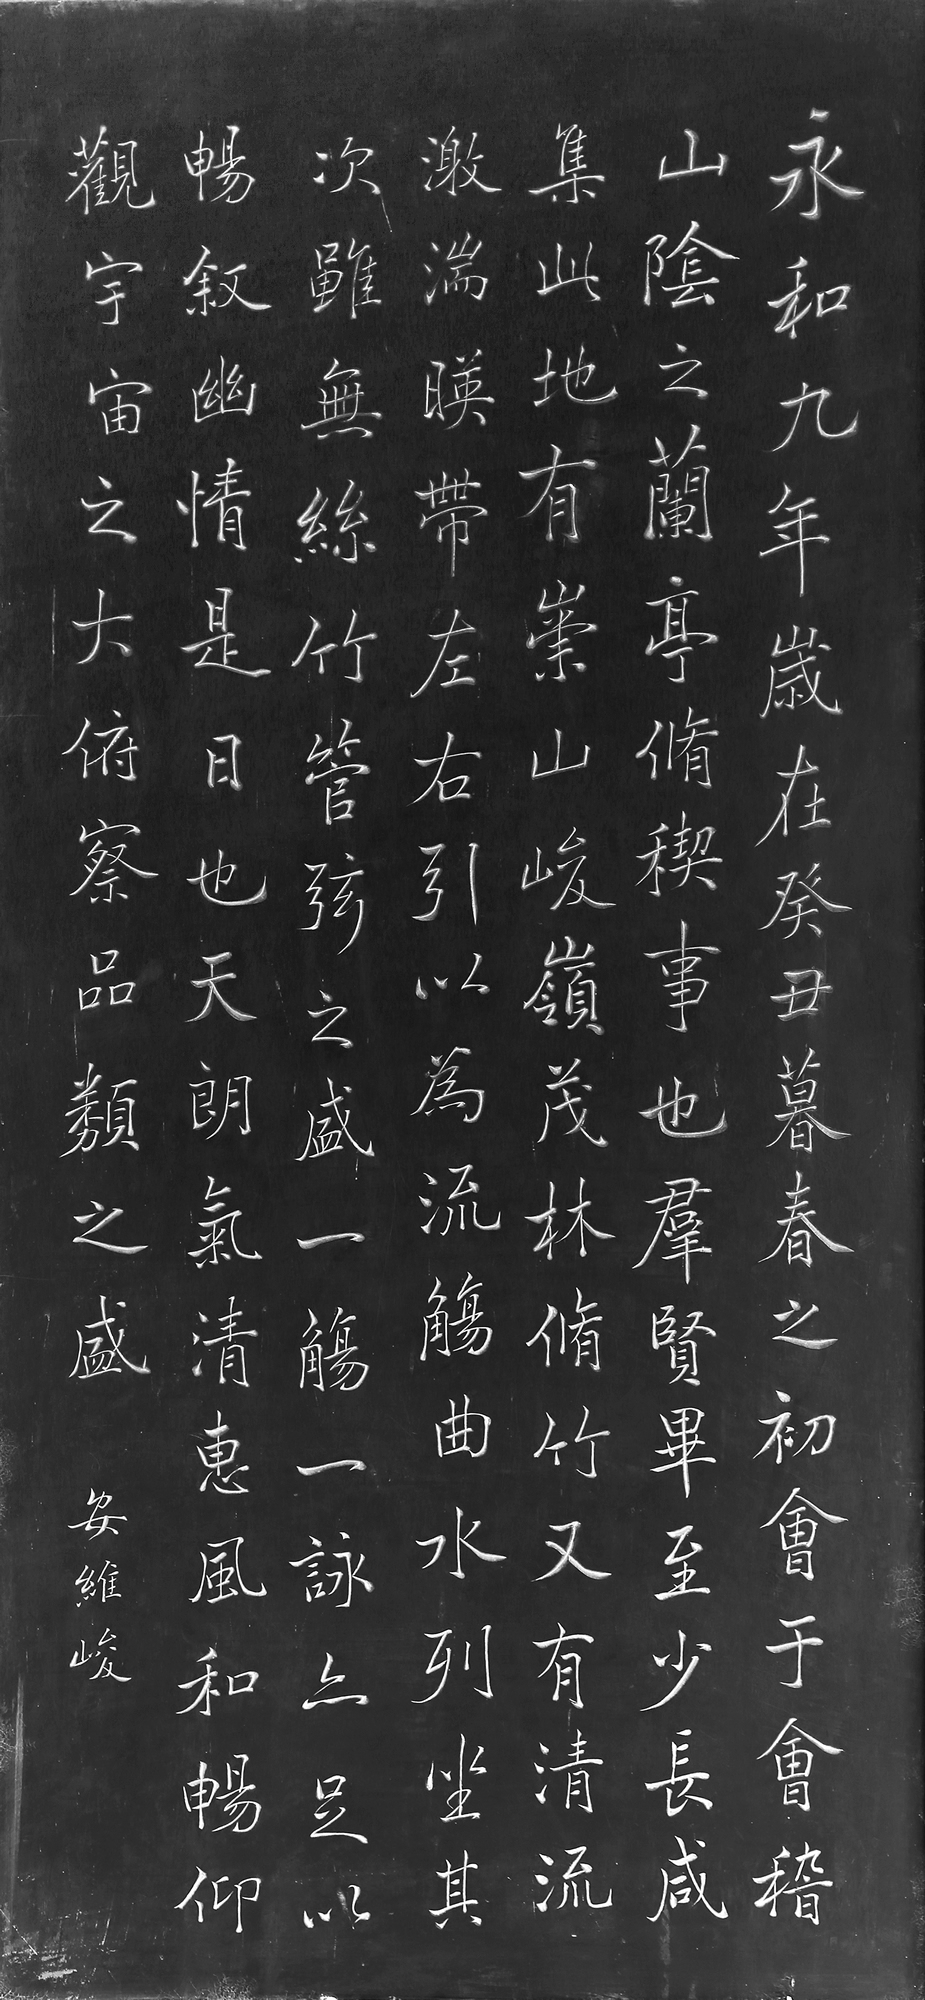 永和九年歲在癸丑暮春之初會于會稽
山陰之蘭亭脩稧事也羣賢畢至少長咸
集此地有崇山峻嶺茂林脩竹又有清流
激湍暎帶左右引以為流觴曲水列坐其
次雖無絲竹管弦之盛一觴一詠亦足以
暢敘幽情是日也天朗氣清惠風和暢仰
觀宇宙之大俯察品類之盛
安維峻